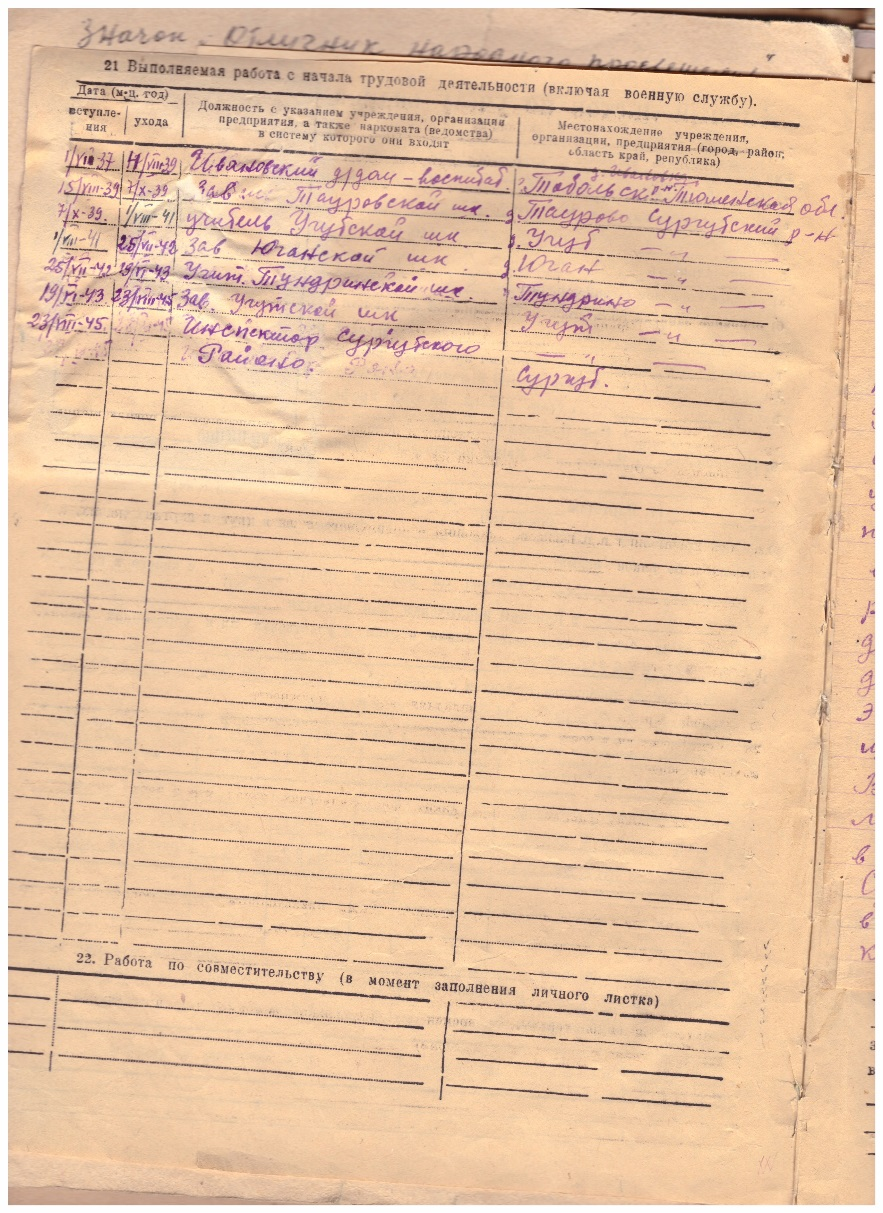 Значок "Отличник народного просвещения"
21 Выполняемая работа с начала трудовой деятельности (включая военную службу).
Дата (м-ц, год)
вступле-
ния
ухода
Должность с указанием учреждения, организации
предприятия, а также наркомата (ведомства)
в систему которого они входят
Местонахождение учреждения,
организации, предприятия (город, район,
область край, республика)
д. Ивановка
1/VIII-37 11/VIII-39 Ивановский д/дом - воспитат. Тобольск. р-н. Тюменская обл.
15/VIII-39 7/X-39 Зав. Тауровской шк. д Таурово Сургутский р-н
7/X-39. 1/VIII-41 учитель Угутской шк д. Угут — " —
1/VIII-41 25/VII-42 Зав Юганской шк. д Юган — " —
25/VII-42 19/VI-43 Учит. Тундринской шк. д Тундрино — " —
19/VI-43 23/VIII-45 Зав. Угутской шк Угут — " —
23/VIII-45. Инспектор Сургутского — " —
Районо. Сургут.
22. Работа по совместительству (в момент заполнения личного листка)